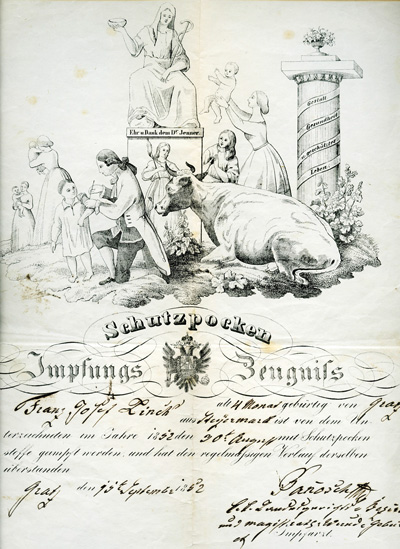 Ehr u Dank dem Dr. Jenner.
Gestalt
Gesundheit
u.
Leben
Schutzpocken
Impfungs Zeugniss
Franz Josef alt 4 Monat gebürtig von Graz
aus Steyermark ist von dem un-
terzeichneten im Jahre 1852 den 20t August mit Schutzpocken
stoffe geimpft worden, und hat den regelmässigen Verlauf derselben
überstanden
Graz den September 1852
Impfarzt.